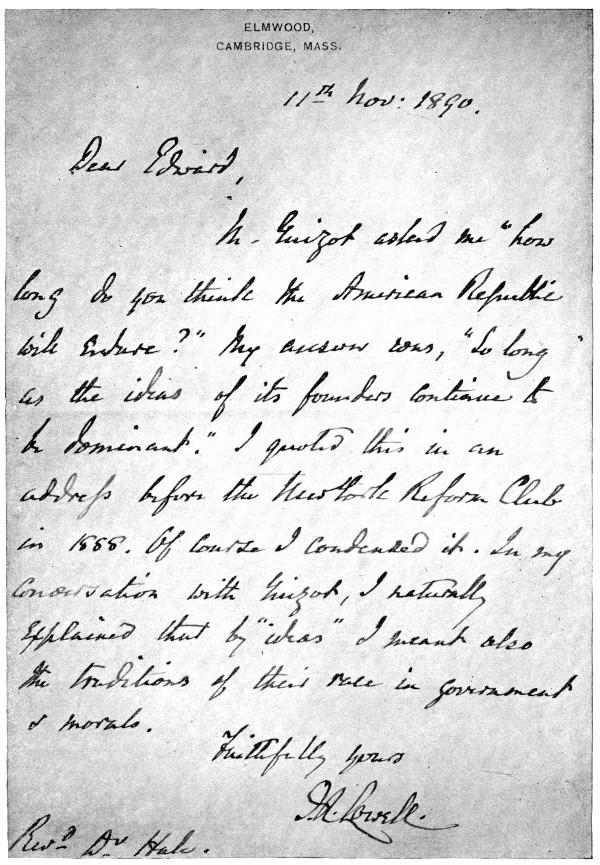 ELMWOOD,
CAMBRIDGE, MASS.
11th Nov: 1890.
Dear Edward,
M. Guizot asked me "how
long do you think the American Republic
will endure?" My answer was, "So long"
as the ideas of its founders continue to
be dominant." I quoted this in an
address before the New York Reform Club
in 1888. Of course I condensed it. In my
conversation with Guizot, I naturally
explained that by "ideas" I meant also
the traditions of their race in government
& morals.
Faithfully yours
J.R. Lowell.
Revd Dr Hale.